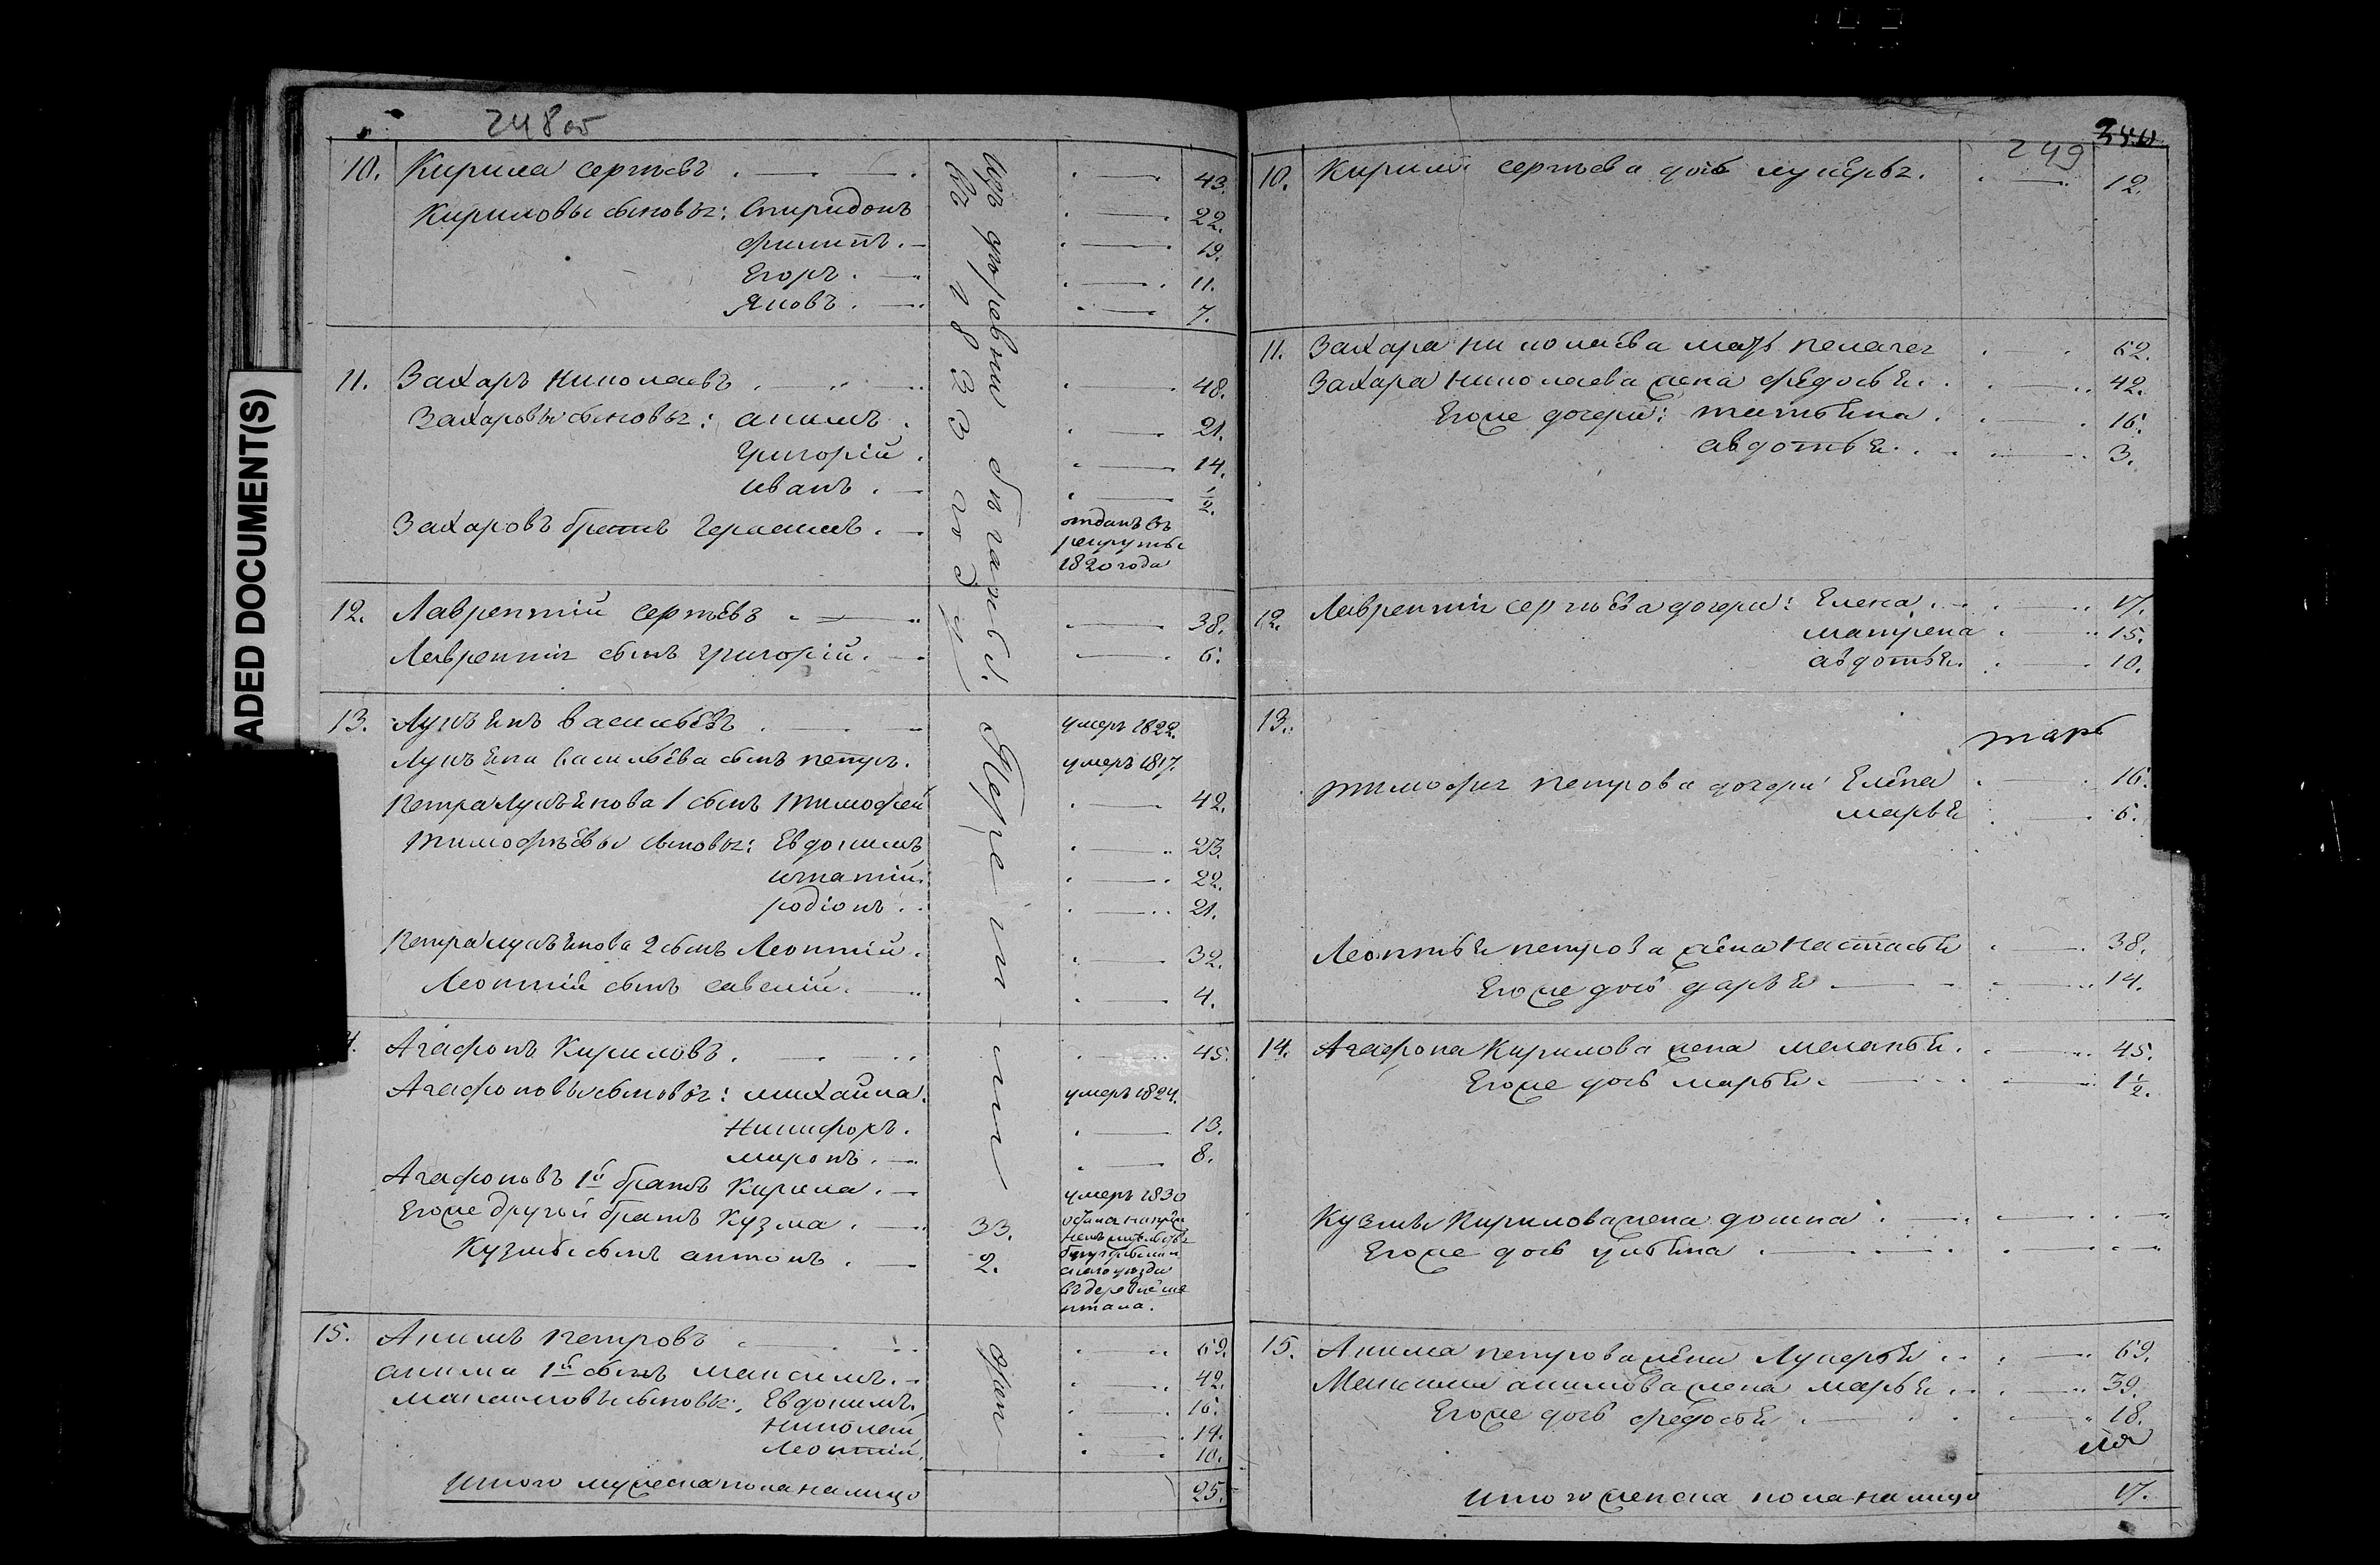 ADED DOCUMENT(S)
248 об
10. Кирила сергѣевъ 43.
Кириловы сыновья: Спиридонъ 22.
филипъ. 19.
Егоръ. 11.
Яковъ. 7.
11. Захаръ Николаевъ 48.
Захаровы сыновья: акимъ 21.
Григорій. 14.
иванъ. 1/2.
Захаровъ братъ Герасимъ. отданъ въ
рекруты
1820 года
12. Лаврентій сергѣевъ 38.
Лаврентія сынъ григорій. 6.
13. Лукъянъ васильевъ умеръ 1822.
Лукъяна васильева сынъ петръ. умеръ 1817.
Петра Лукъянова 1 сынъ Тимофей 42.
Тимофѣевы сыновья: Евдокимъ 23.
игнатій 22.
родіонъ. 21.
Петра лукъянова 2 сынъ Леонтій. 32.
Леонтія сынъ савелій. 4.
4. Агафонъ Кириловъ. 45.
Агафоновы сыновья: михайла. умеръ 1824.
Никифоръ. 13.
миронъ. 8.
Агафоновъ 1й братъ Кирила. умеръ 1830
Егоже другой братъ Кузма. 33.
Кузмы сынъ антонъ. 2.
уѣзда
въ деревне
15. Акимъ петровъ 69.
акима 1й сынъ максимъ. 42.
максимовы сыновья: Евдокимъ. 16.
николай 14.
леонтій. 10.
итого мужеска пола налицо 25.
въ 1833 году
изъ деревни
249
10. Кирилы сергѣева дочь лукерья. 12.
11. Захара николаева мать пелагея 62.
Захара николаева жена федосья. 42.
Егоже дочери: татьяна. 16.
авдотья. 3.
12. Лаврентія сергѣева дочери: Елена. 17.
матрена 15.
авдотья. 10.
13.
Тимофея петрова дочери Елена 16.
марья 6.
Леонтья петрова жена настасья 38.
Егоже дочь дарья 14.
14. Агафона Кирилова жена меланья. 45.
Егоже дочь марья. 1 1/2.
Кузмы Кирилова жена домна
Егоже дочь ульяна
15. Акима петрова жена Лукерья 69.
Максима акимова жена марья 39.
Егоже дочь федосья 18.
итого женска пола налицо 17.